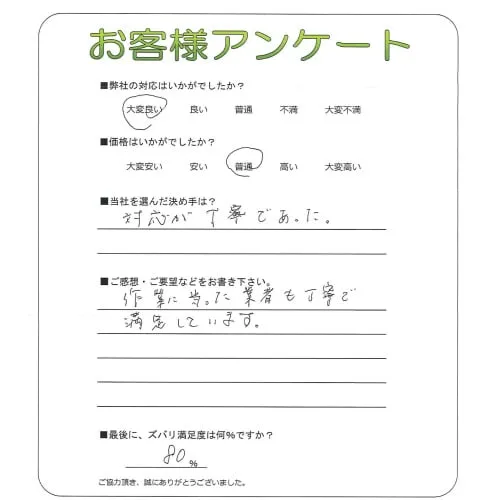 お客様アンケート
■弊社の対応はいかがでしたか？
大変良い 良い 普通 不満 大変不満
■価格はいかがでしたか？
大変安い 安い 普通 高い 大変高い
■当社を選んだ決め手は？
対応が丁寧であった。
■ご感想・ご要望などをお書き下さい。
作業に当った業者も丁寧で
満足しています。
■最後に、ズバリ満足度は何％ですか？
80％
ご協力頂き、誠にありがとうございました。